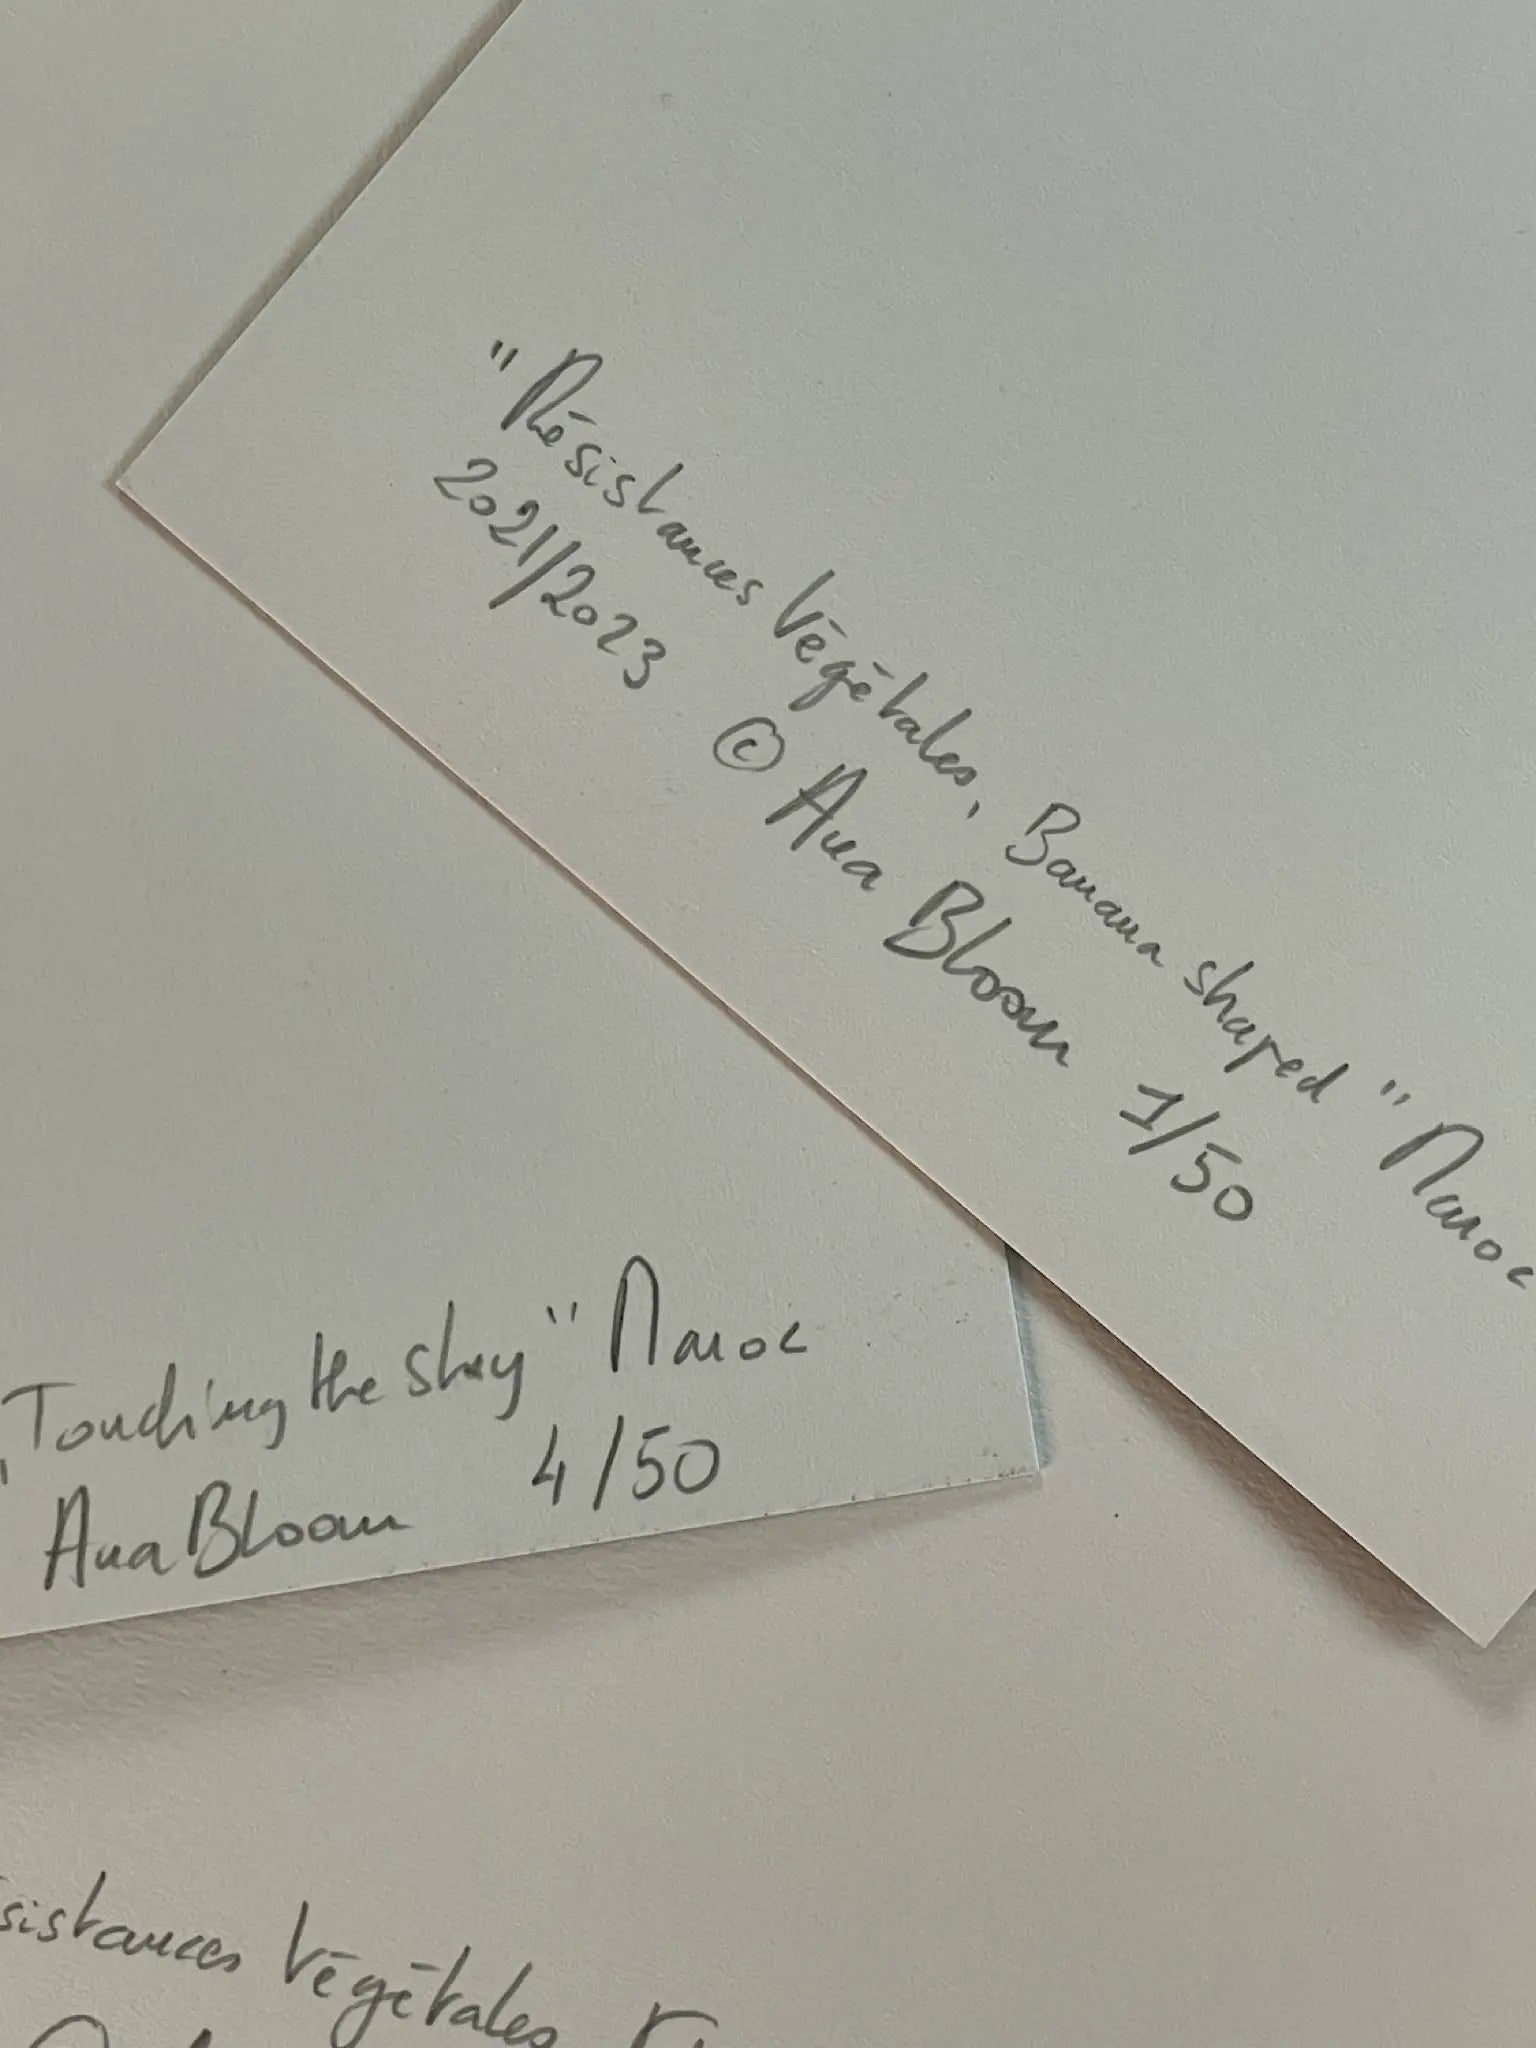 "Résistances Végétales, Banana shaped" Maroc
2021/2023 © Ana Bloom 1/50
"Touching the sky" Maroc
Ana Bloom 4/50
sistances Végétales